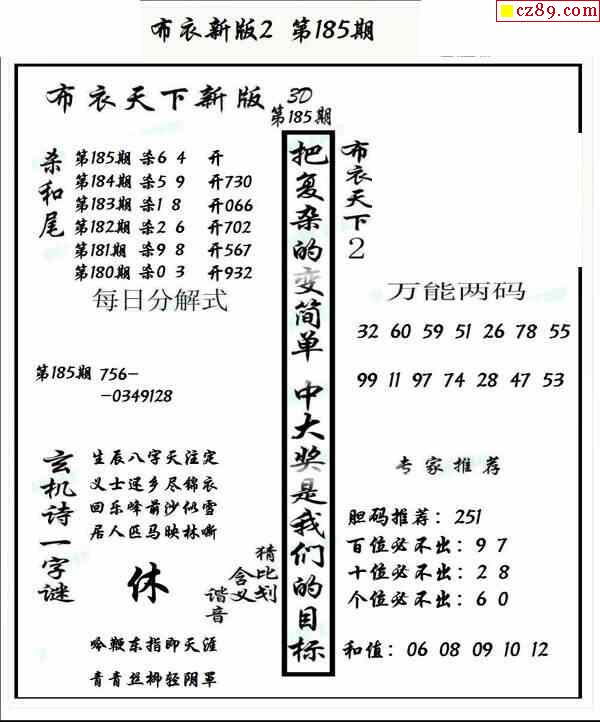 cz89.com
布衣新版2 第185期
布衣天下新版 3D
第185期
杀和尾
第185期 杀6 4 开
第184期 杀5 9 开730
第183期 杀1 8 开066
第182期 杀2 6 开702
第181期 杀9 8 开567
第180期 杀0 3 开932
每日分解式
第185期 756-
-0349128
玄机诗一字谜
生辰八字天注定
义士还乡尽锦衣
回乐峰前沙似雪
居人匹马映林嘶
休
猜比划
含义
谐音
吟鞭东指即天涯
青青丝柳轻阴罩
把复杂的变简单 中大奖是我们的目标
布衣天下2
万能两码
32 60 59 51 26 78 55
99 11 97 74 28 47 53
专家推荐
胆码推荐：251
百位必不出：9 7
十位必不出：2 8
个位必不出：6 0
和值：06 08 09 10 12